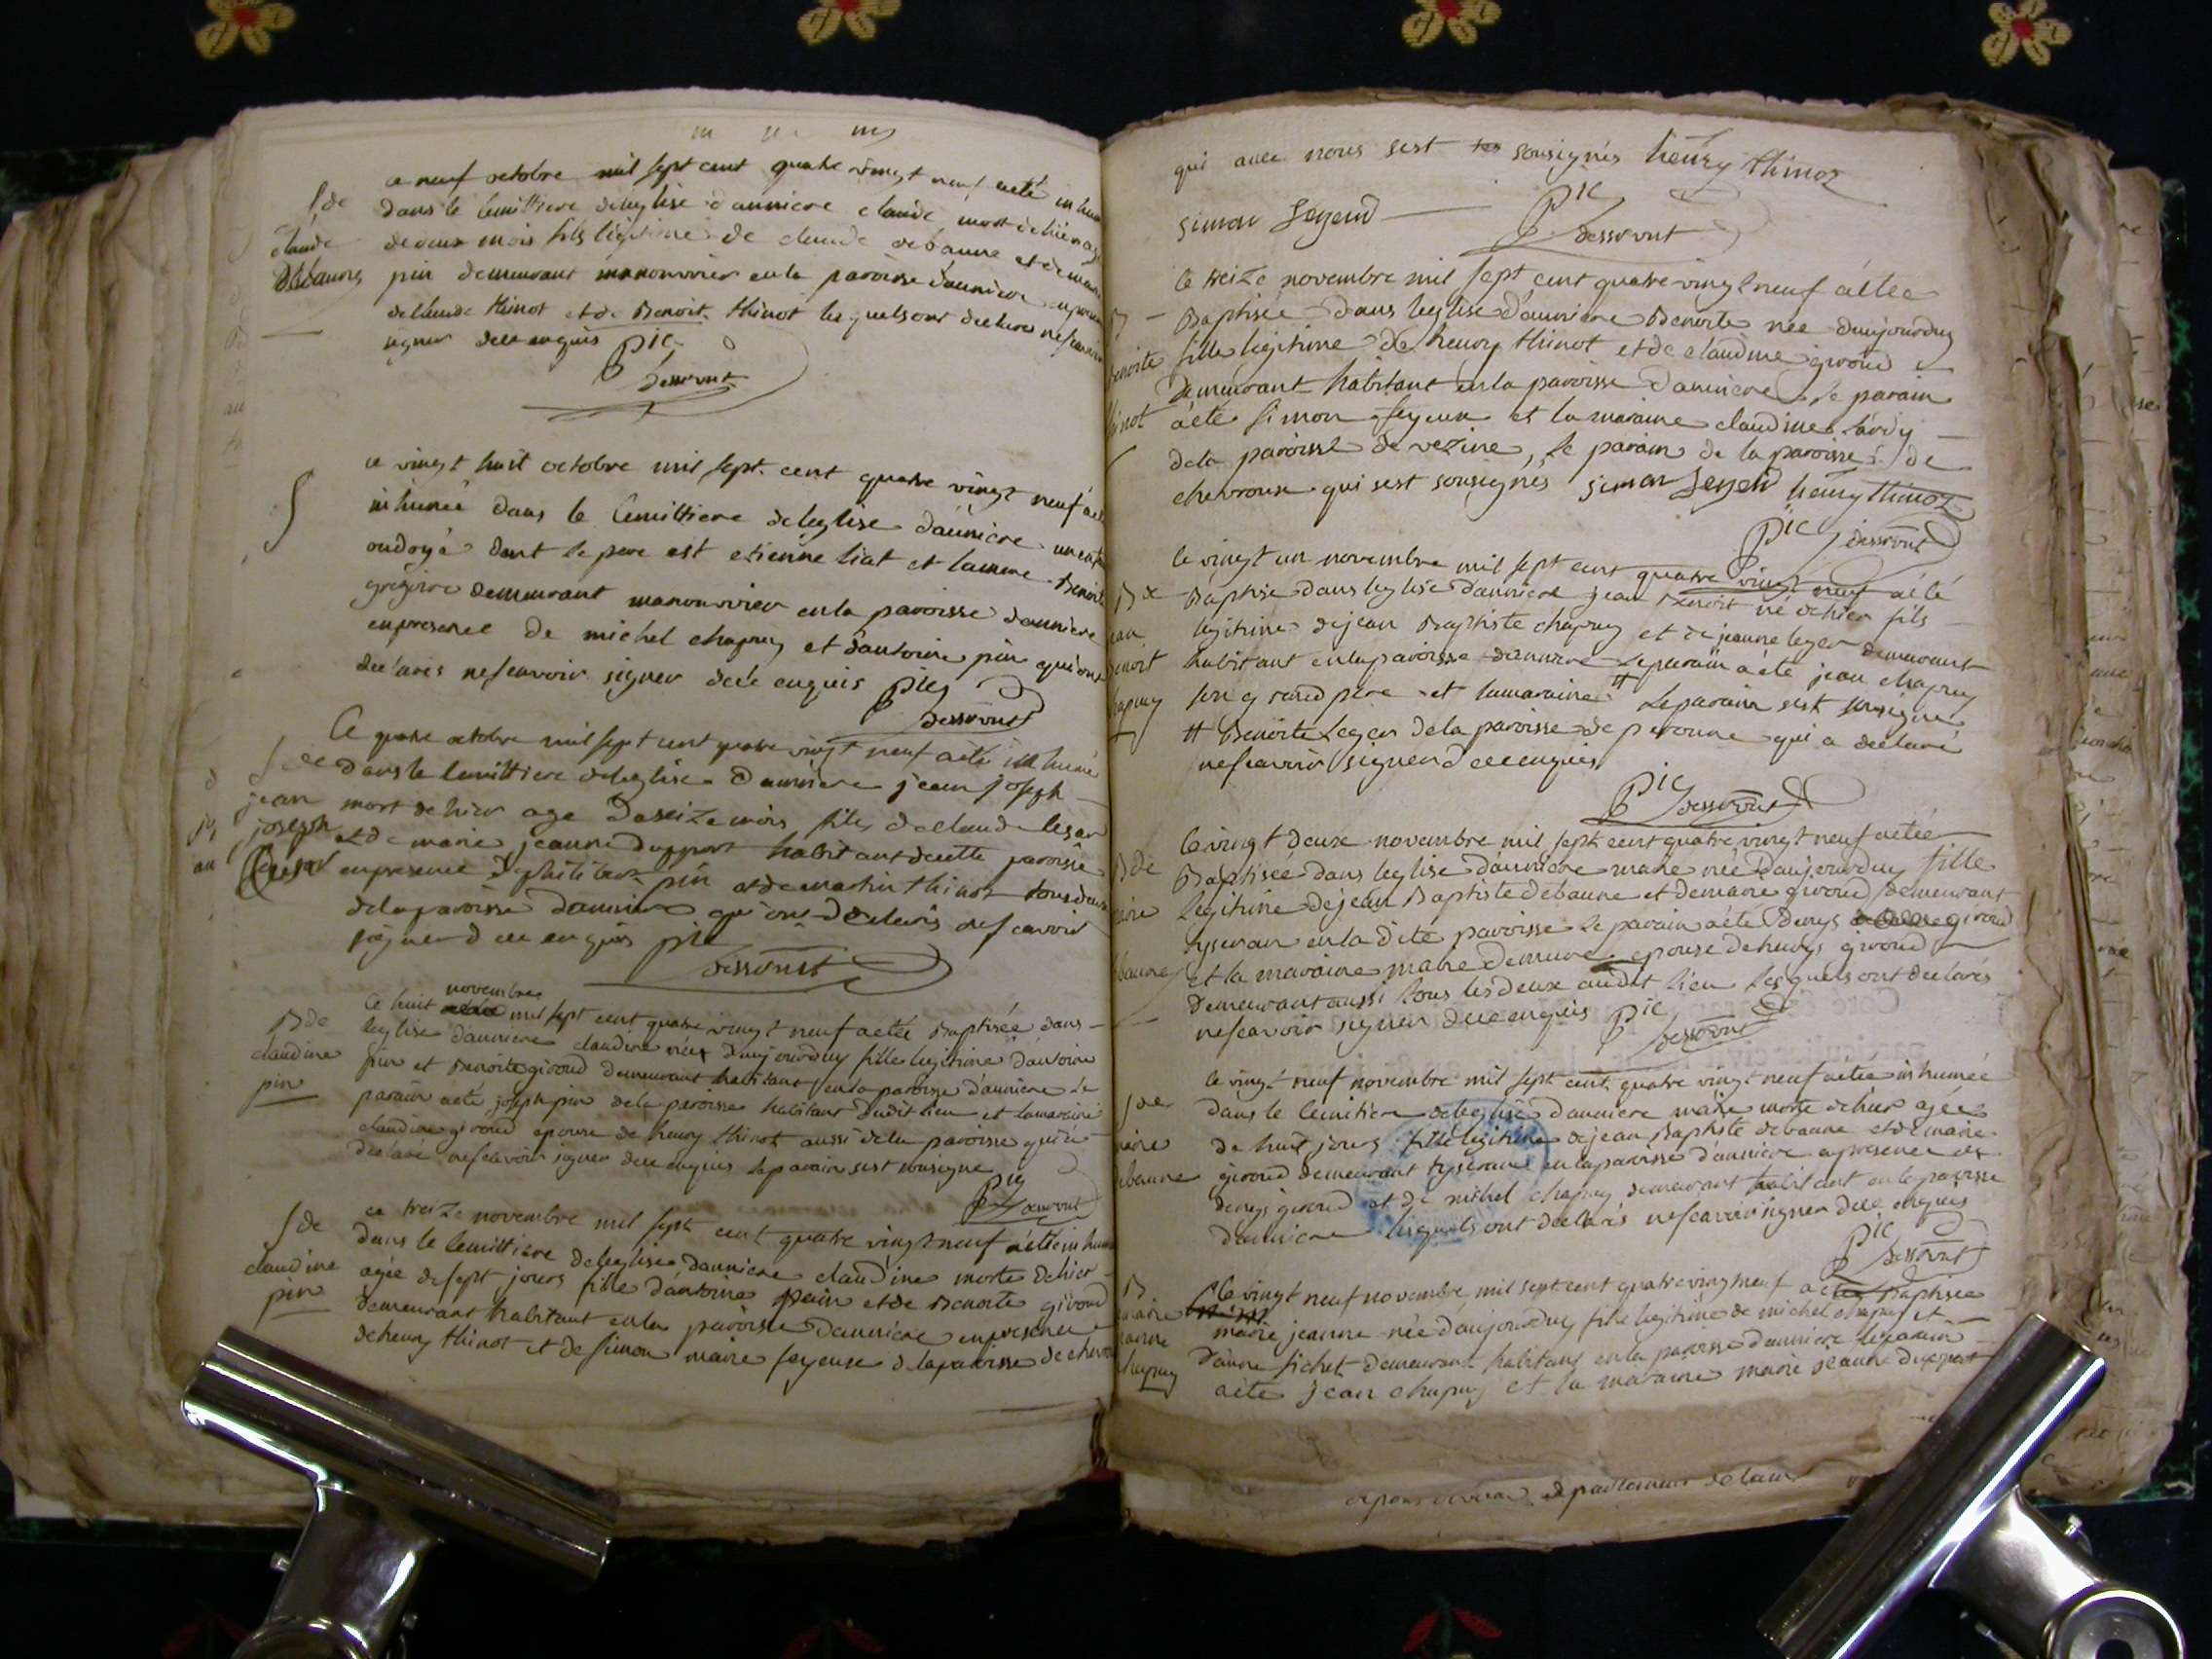 S de
claude
Debaune
ce neuf octobre mil sept cent quatre vingt neuf aeté inhum
dans le Cemittiere deleglise dauniere claude mort dehier agé
dedeux mois fils legitime de claude debaune et de marie
pin demeurant manouvrier en la paroisse dauniere en presen
declaude thinot et de Benoit thinot lesquels ont declarés ne scavoir
signer dece enquis Pic
Dessronst
S
ce vingt huit octobre mil sept cent quatre vingt neuf aeté
inhumé dans le Cemittiere deleglise dauniere un enfan
ondoyé dont le pere est etienne liat et lamere Benoite
gregoire demeurant manouvrier en la paroisse dauniere
enpresence de michel chapuy et dantoine pin qui ont
declarés ne scavoir signer dece enquis Pic
Dessronst
S de
jean
joseph
Ce quatre octobre mil sept cent quatre vingt neuf aeté inhumé
dans le Cemittiere deleglise dauniere jean joseph
mort dehier age de seize mois fils de claude
et de marie jeanne Dupport habitant de cette paroisse
enpresence pin et de martin thinot tous deux
dela paroisse dauniere qui ont declarés ne scavoir
signer dece enquis pic
Dessronst
B de
claudine
pin
novembre
Ce huit mil sept cent quatre vingt neuf aetée Baptisée dans
leglise dauniere claudine née daujourduy fille legitime dantoine
pin et Benoite giroud demeurant habitant en la paroisse dauniere le
parain aeté joseph pin dela paroisse habitant dudit lieu et lamaraine
claudine giroud epouse de henry thinot aussi dela paroisse qui a
declaré ne scavoir signer dece enquis le parain sest sousigne
Pic
Dessronst
S de
claudine
pin
ce treize novembre mil sept cent quatre vingt neuf aetée inhum
dans le Cemittiere deleglise dauniere claudine morte dehier
agée de sept jours fille dantoine pin et de Benoite giroud
demeurant habitant en la paroisse dauniere enpresence
de henry thinot et de simon maire seyeuse dela paroisse de chevro
qui avec nous sest sousignés henry thinoz
simon Seyeud Pic
Dessronst
B
Benoite
thinot
le treize novembre mil sept cent quatre vingt neuf aetée
Baptisée dans leglise dauniere Benoite née daujourduy
fille legitime de henry thinot et de claudine giroud
Demeurant habitant en la paroisse dauniere, le parain
aeté simon seyeux et la maraine claudine Tardy
dela paroisse de vezine, le parain de la paroisse de
chevroux qui sest sousignés simon Seyeud henry thinoz
Pic Dessronst
B de
jean
Benoit
chapuy
le vingt un novembre mil sept cent quatre vingt neuf aeté
Baptisé dans leglise dauniere jean Benoit né dehier fils
legitime de jean Baptiste chapuy et de jeanne leger demeurant
habitant en la paroisse dauniere le parain aeté jean chapuy
son grand pere et lamaraine # Le parain sest sousigné
# Benoite Leger dela paroisse de peronne qui a declaré
ne scavoir signer dece enquis
Pic Dessronst
B de
marie
debaune
le vingt deux novembre mil sept cent quatre vingt neuf aetée
Baptisée dans leglise dauniere marie née daujourduy fille
legitime de jean Baptiste debaune et de marie giroud demeurant
tyseran en la dite paroisse le parain aeté denys giroud
et la maraine marie epouse de denys giroud
demeurant aussi tous les deux audit lieu lesquels ont declarés
ne scavoir signer dece enquis Pic
Dessronst
S de
marie
debaune
le vingt neuf novembre mil sept cent quatre vingt neuf aetée inhumée
dans le Cemitiere deleglise dauniere marie morte dehier agée
de huit jours fille legitime de jean Baptiste debaune et de marie
giroud demeurant tyseran en la paroisse dauniere apresence de
denys giroud et de michel chapuy demeurant habitant en la paroisse
dauniere lesquels ont declarés ne scavoir signer dece enquis
Pic
Dessronst
B
marie
jeanne
chapuy
le vingt neuf novembre mil sept cent quatre vingt neuf aetée Baptisée
marie jeanne née daujourduy fille legitime de michel chapuy et
danne fichet demeurant habitans en la paroisse dauniere le parain
aeté jean chapuy et la maraine marie jeanne Dupport
departement de lain